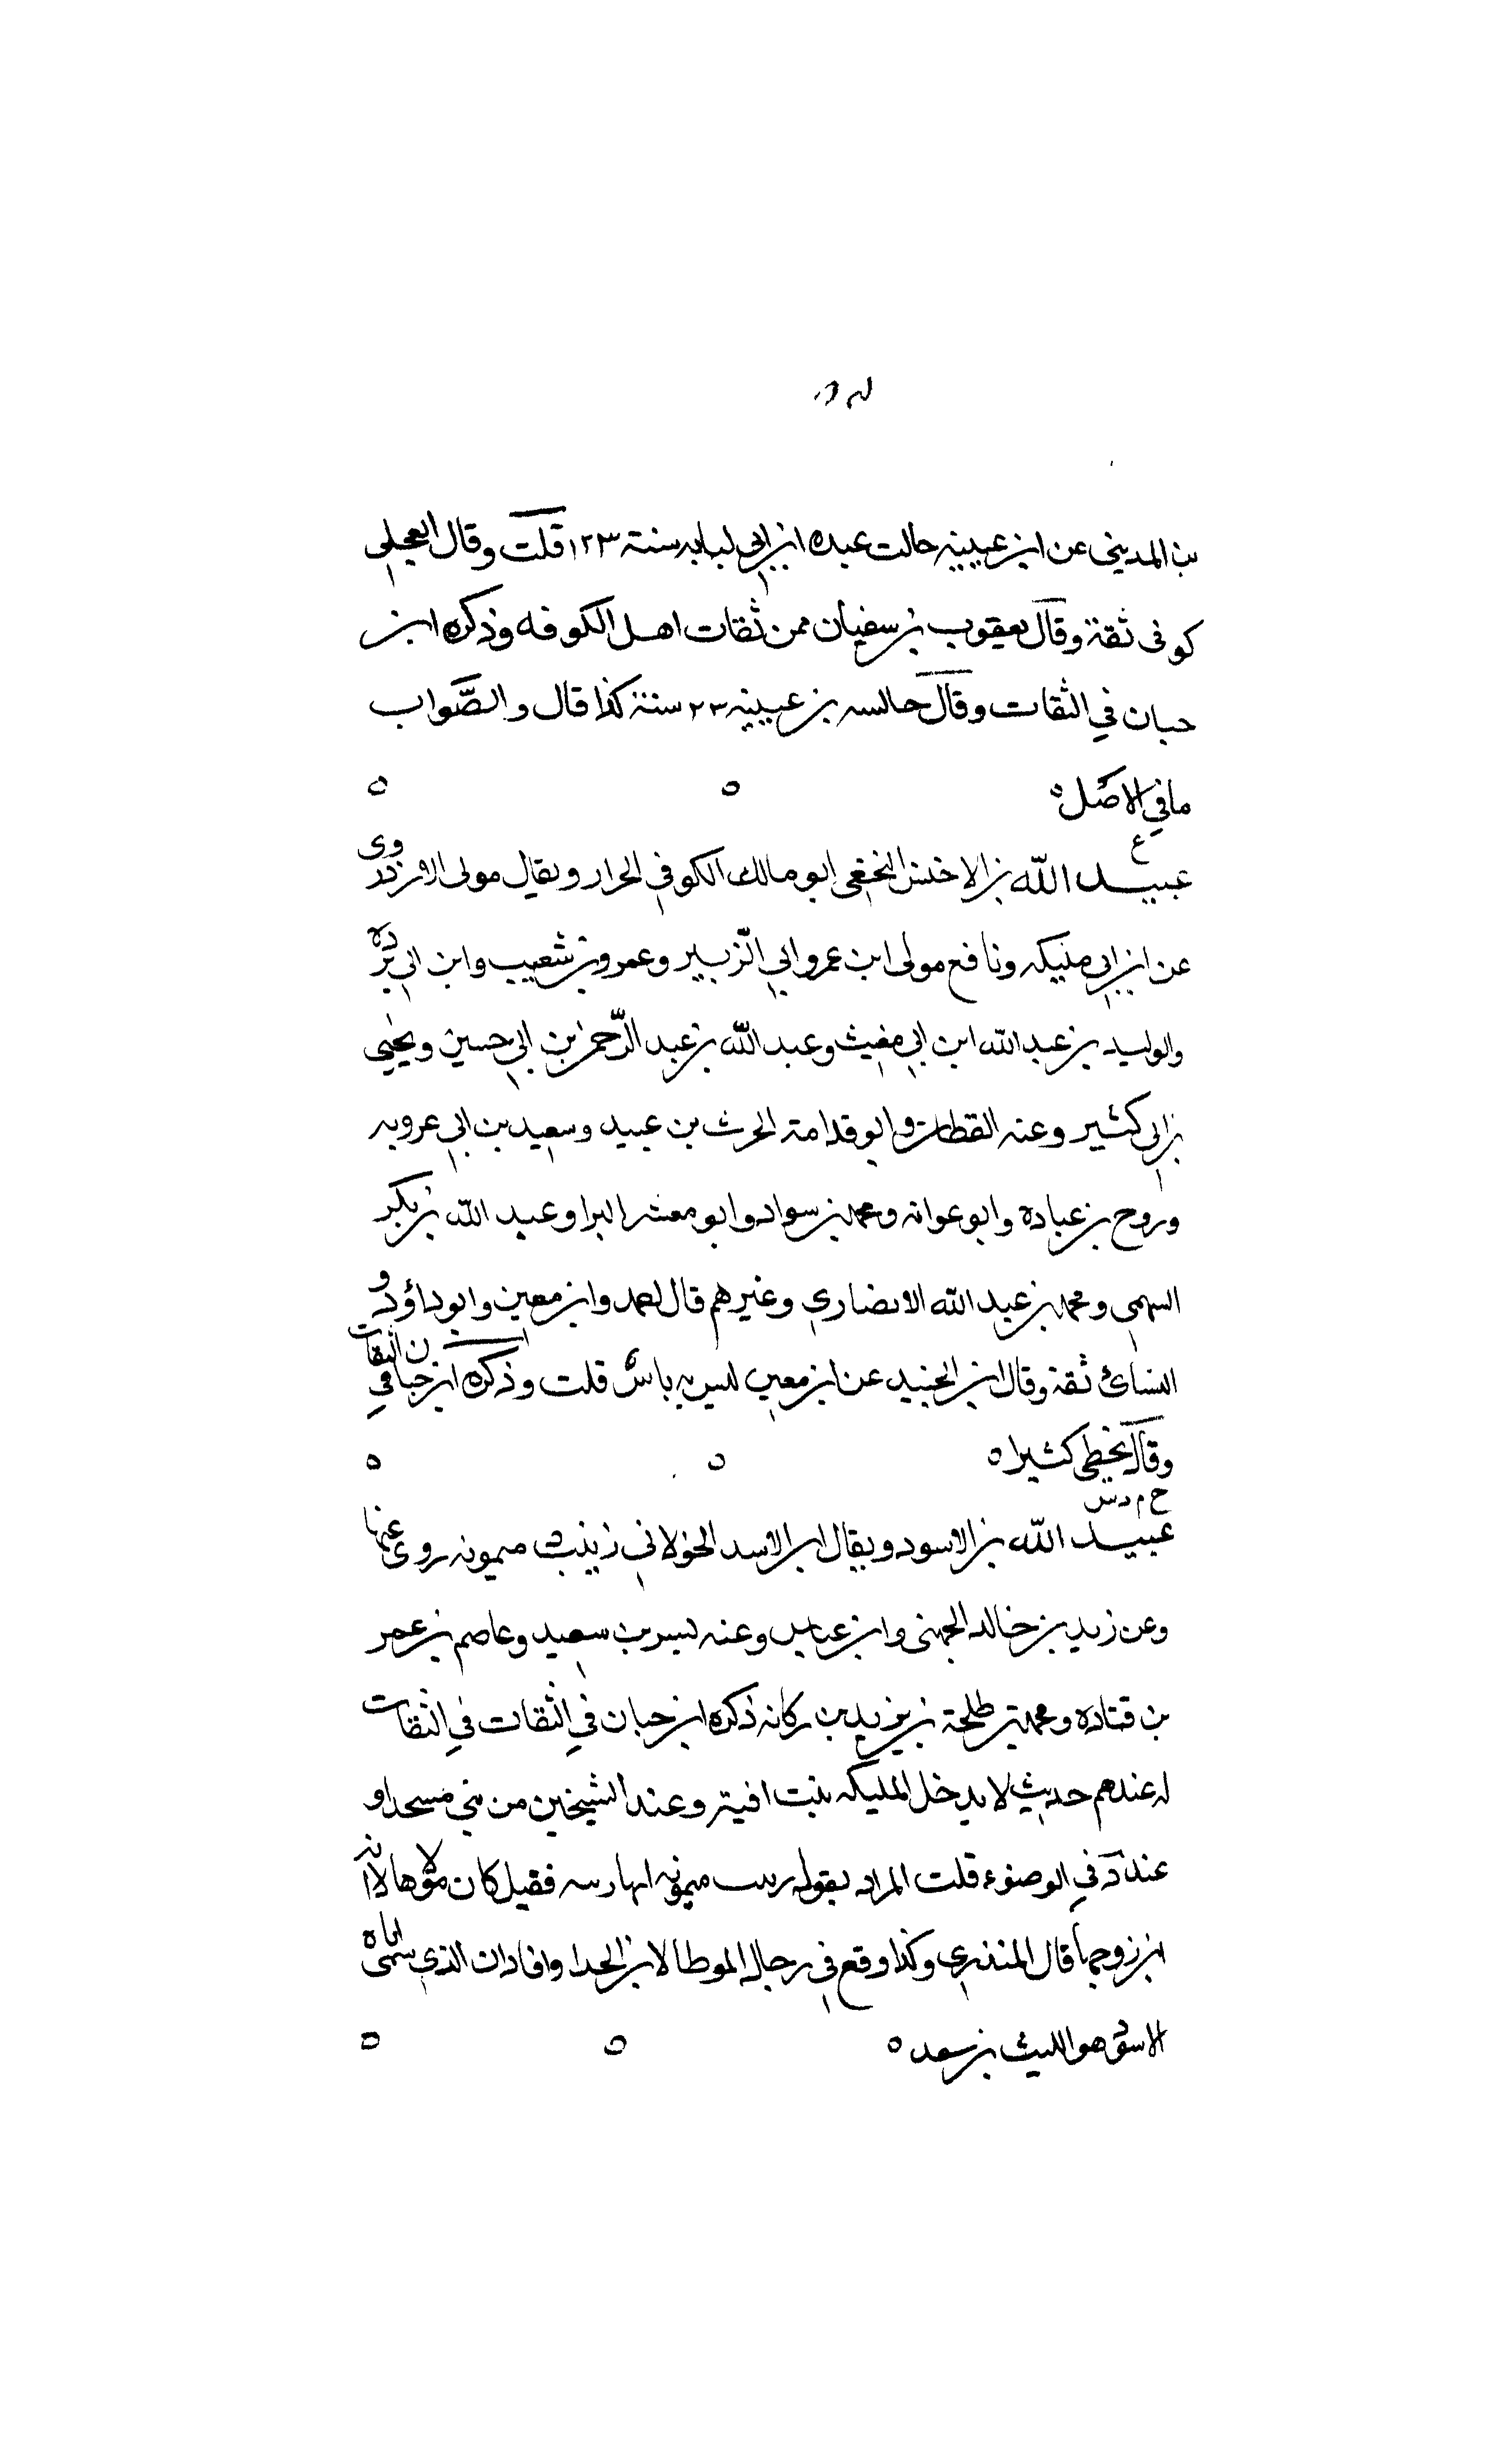 بن المديني عن ابن عيينه جالست عبده ابن ابي لبابه سنة ١٢٣ قلت وقال العجلي
كوفي ثقة وقال يعقوب بن سفيان من ثقات اهل الكوفه وذكره ابن
حبان في الثقات وقال جالسه بن عيينه ٢٣ سنة كذا قال والصواب
ما في الاصل ه
ع
عبيد الله بن الاخنس النخعي ابو مالك الكوفي الحرار ويقال مولى الازد روى
عن ابن ابي مليكه ونافع مولى ابن عمر وابي الزبير وعمرو بن شعيب وابن ابي برده
والوليد بن عبد الله ابن ابي مغيث وعبد الله بن عبد الرحمن بن ابي حسين ويحيى
بن ابي كثير وعنه القطان وابو قدامة الحرث بن عبيد وسعيد بن ابي عروبه
وروح بن عباده وابو عوانه ومحمد بن سواد وابو معشر البرا وعبد الله بن بكر
السهمي ومحمد بن عبد الله الانصاري وغيرهم قال احمد وابن معين وابو داؤد و
النسائ ثقة وقال ابن الجنيد عن ابن معين ليس به باس قلت وذكره ابن حبان في الثقات
وقال يخطي كثيرا ه
خ م د س
عبيد الله بن الاسود ويقال ابن الاسد الخولاني ربيب ميمونه روى عنها
وعن زيد بن خالد الجهني وابن عباس وعنه بسر بن سعيد وعاصم بن عمر
بن قتاده ومحمد بن طلحة بن يزيد بن ركانه ذكره ابن حبان في الثقات في الثقات
له عندهم حديث لا يدخل المليكه بيتا فيه وعند الشيخين من بني مسجدا و
عند د في الوضوء قلت المراد بقوله ربيب ميمونه انها ربته فقيل كان مولاها لا انه
ابن زوجها قال المنذري وكذا وقع في رجال الموطا لابن الحذا وافاد ان الذي سمى اباه
الاسود هو الليث بن سعد ه